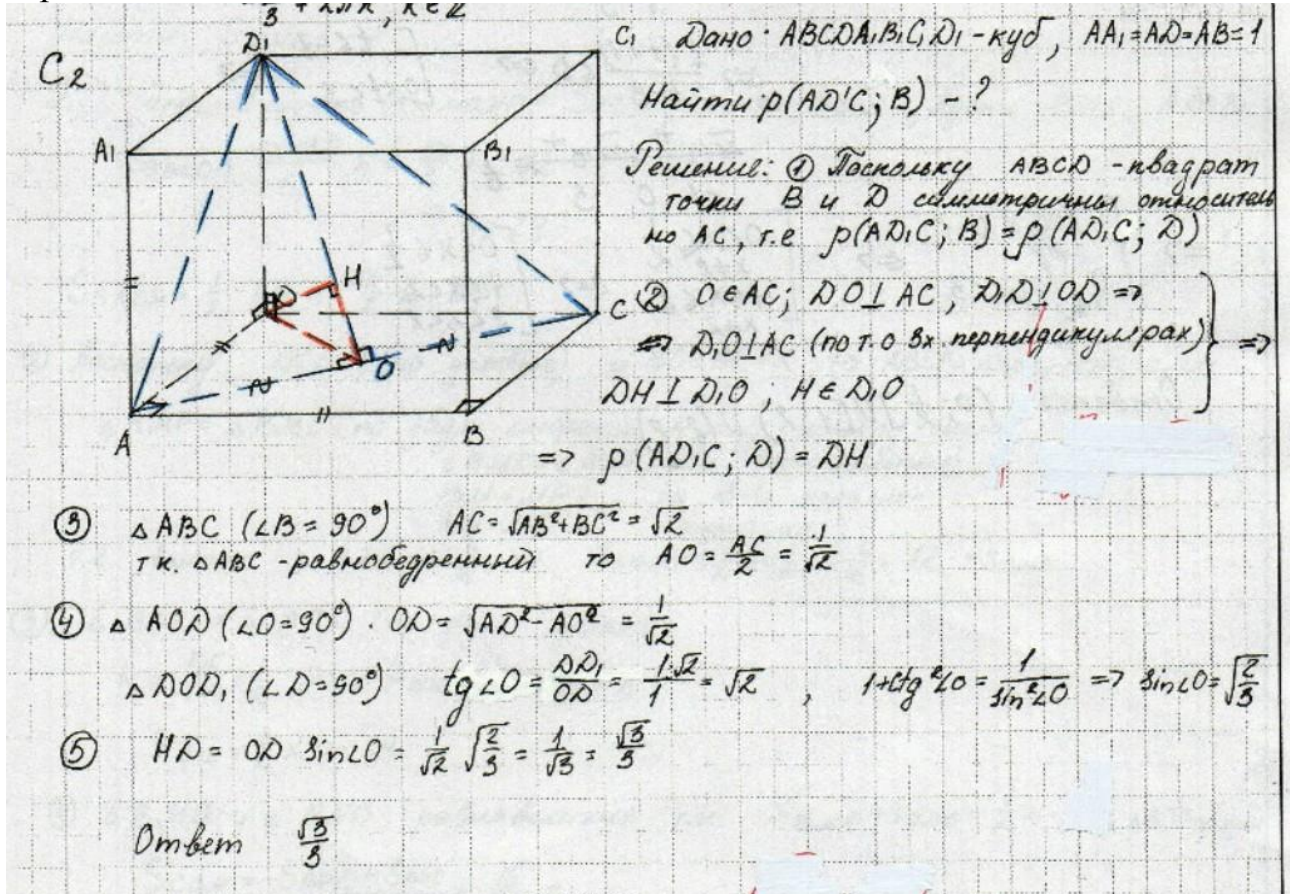 3 + 2πk, k∈ℤ
C2
D1
C1
A1
B1
H
D
C
O
A
B
Дано: ABCDA1B1C1D1 - куб, AA1=AD=AB=1
Найти ρ(AD'C; B) - ?
Решение: ① Поскольку ABCD - квадрат
точки B и D симметричны относитель
но AC, т.е ρ(AD1C; B) = ρ(AD1C; D)
② O∈AC; DO⊥AC, D1D⊥OD =>
=> D1O⊥AC (по т. о 3х перпендикулярах) } =>
DH⊥D1O ; H∈D1O
=> ρ(AD1C; D) = DH
③ △ABC (∠B = 90°) AC = √(AB²+BC²) = √2
т к. △ABC - равнобедренный то AO = AC/2 = 1/√2
④ △AOD (∠O=90°). OD = √(AD²-AO²) = 1/√2
△DOD1 (∠D=90°) tg∠O = DD1/OD = 1·√2/1 = √2 , 1+ctg²∠O = 1/sin²∠O => sin∠O = √(2/3)
⑤ HD = OD sin∠O = 1/√2 √(2/3) = 1/√3 = √3/3
Ответ √3/3